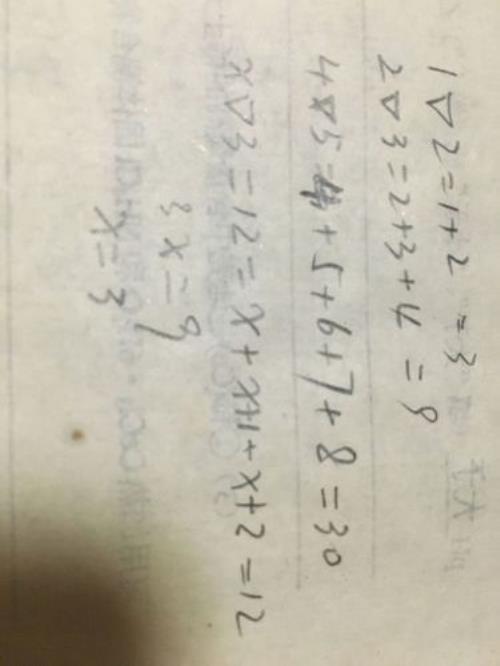 1▽2=1+2=3
2▽3=2+3+4=9
4▽5=4+5+6+7+8=30
x▽3=12=x+x+1+x+2=12
3x=9
x=3